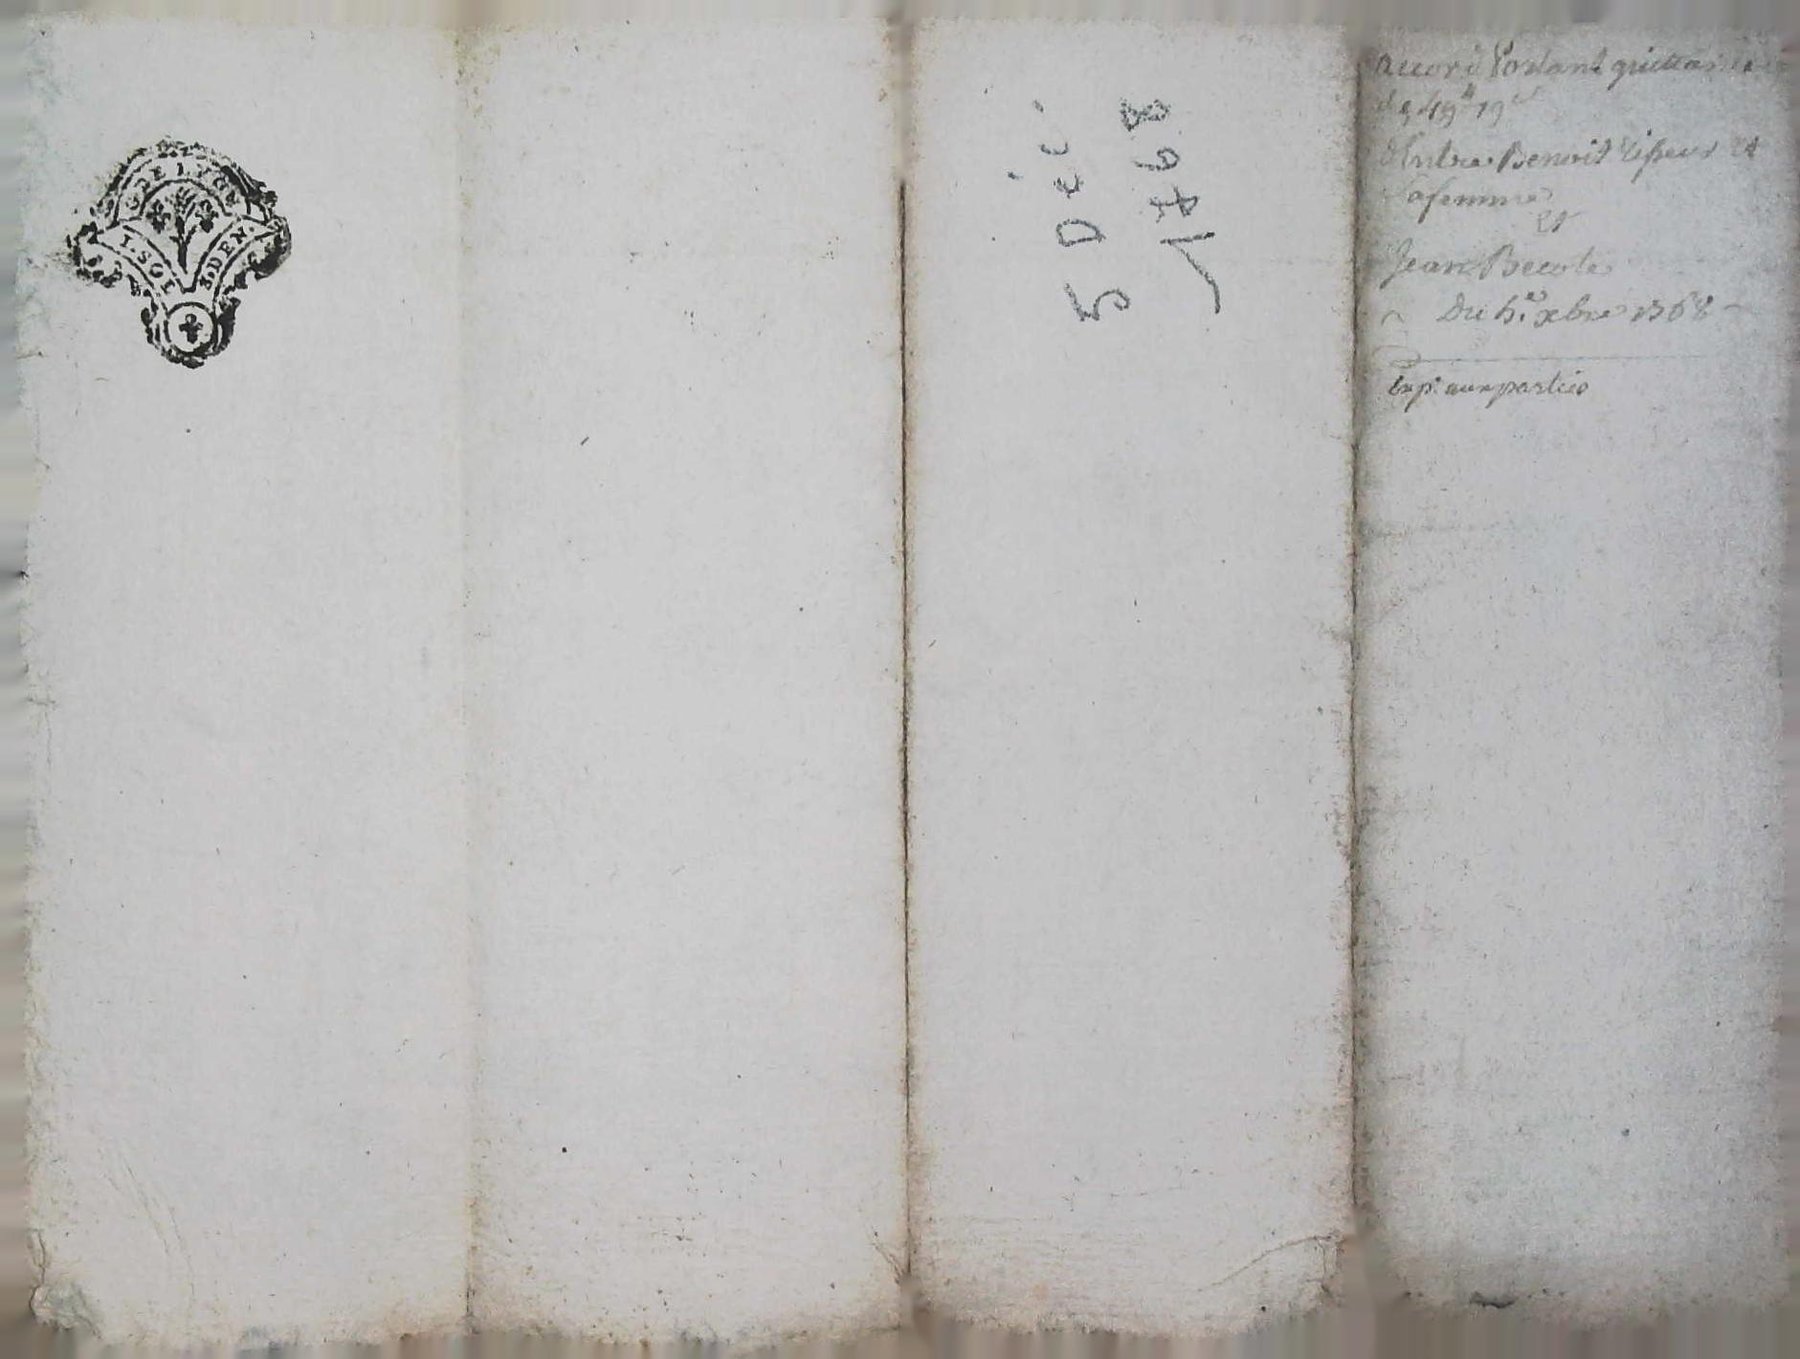 G. DE LYON
I. SOL
8 DEN.
5 Déc.
1768
accord Portant quittance
de 49# 19s
Entre Benoit Tisseur et
Sa femme
Et
Jean Becole
Du 5.e xbre 1768
Exp. aux parties